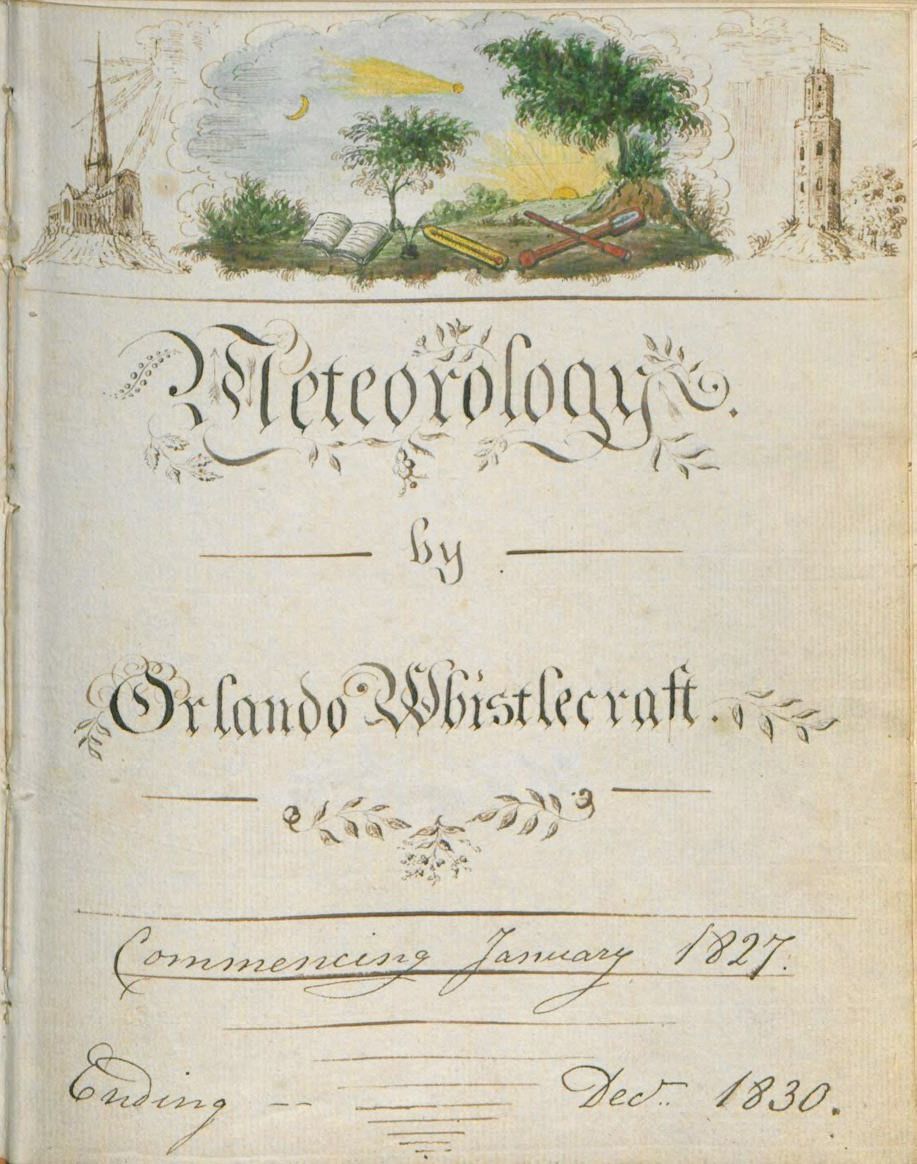 Meteorology.
by
Orlando Whistlecraft.
Commencing January 1827.
Ending -- Decr. 1830.